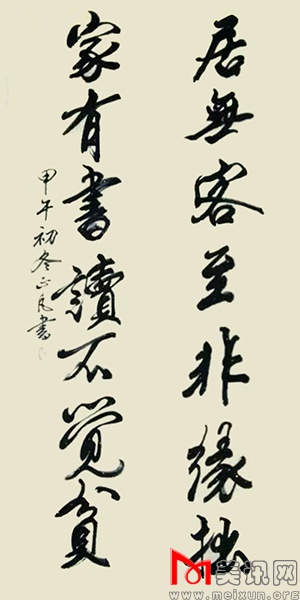 居無客至非緣拙
家有書讀不覺貧
甲午初冬正凡書
美讯网
www.meixun.org